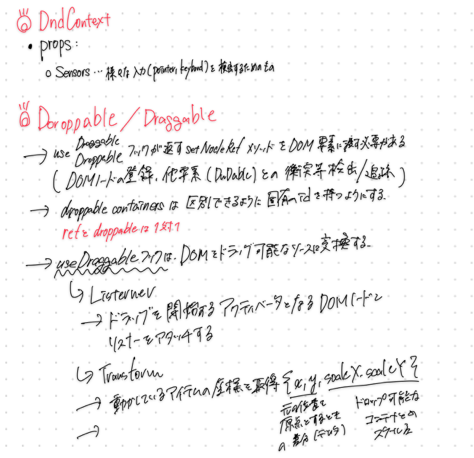 DndContext
• props:
○ Sensors … 様々な入力(pointer, keyboard)を検出するためのもの
Doroppable / Draggable
Draggable
→ use Droppable フックが返す setNodeRef メソッドをDOM要素に渡す必要がある
(DOMノードの登録、他要素 (DoDable) との衝突等検出/追跡)
→ droppable containers は 区別できるように 固有のidを持つようにする.
refとdroppableは1対1
→ useDraggableフックは、DOMをドラッグ可能なソースに変換する.
↳ Listerner
→ ドラッグを開始するアクティベータとなるDOMノードに
リスナーをアタッチする
↳ Transform
→ 動かしているアイテムの座標を取得 {x, y, scaleX, scaleY}
元の位置を ドロップ可能な
原点とするとき コンテナとの
の
スケール
→